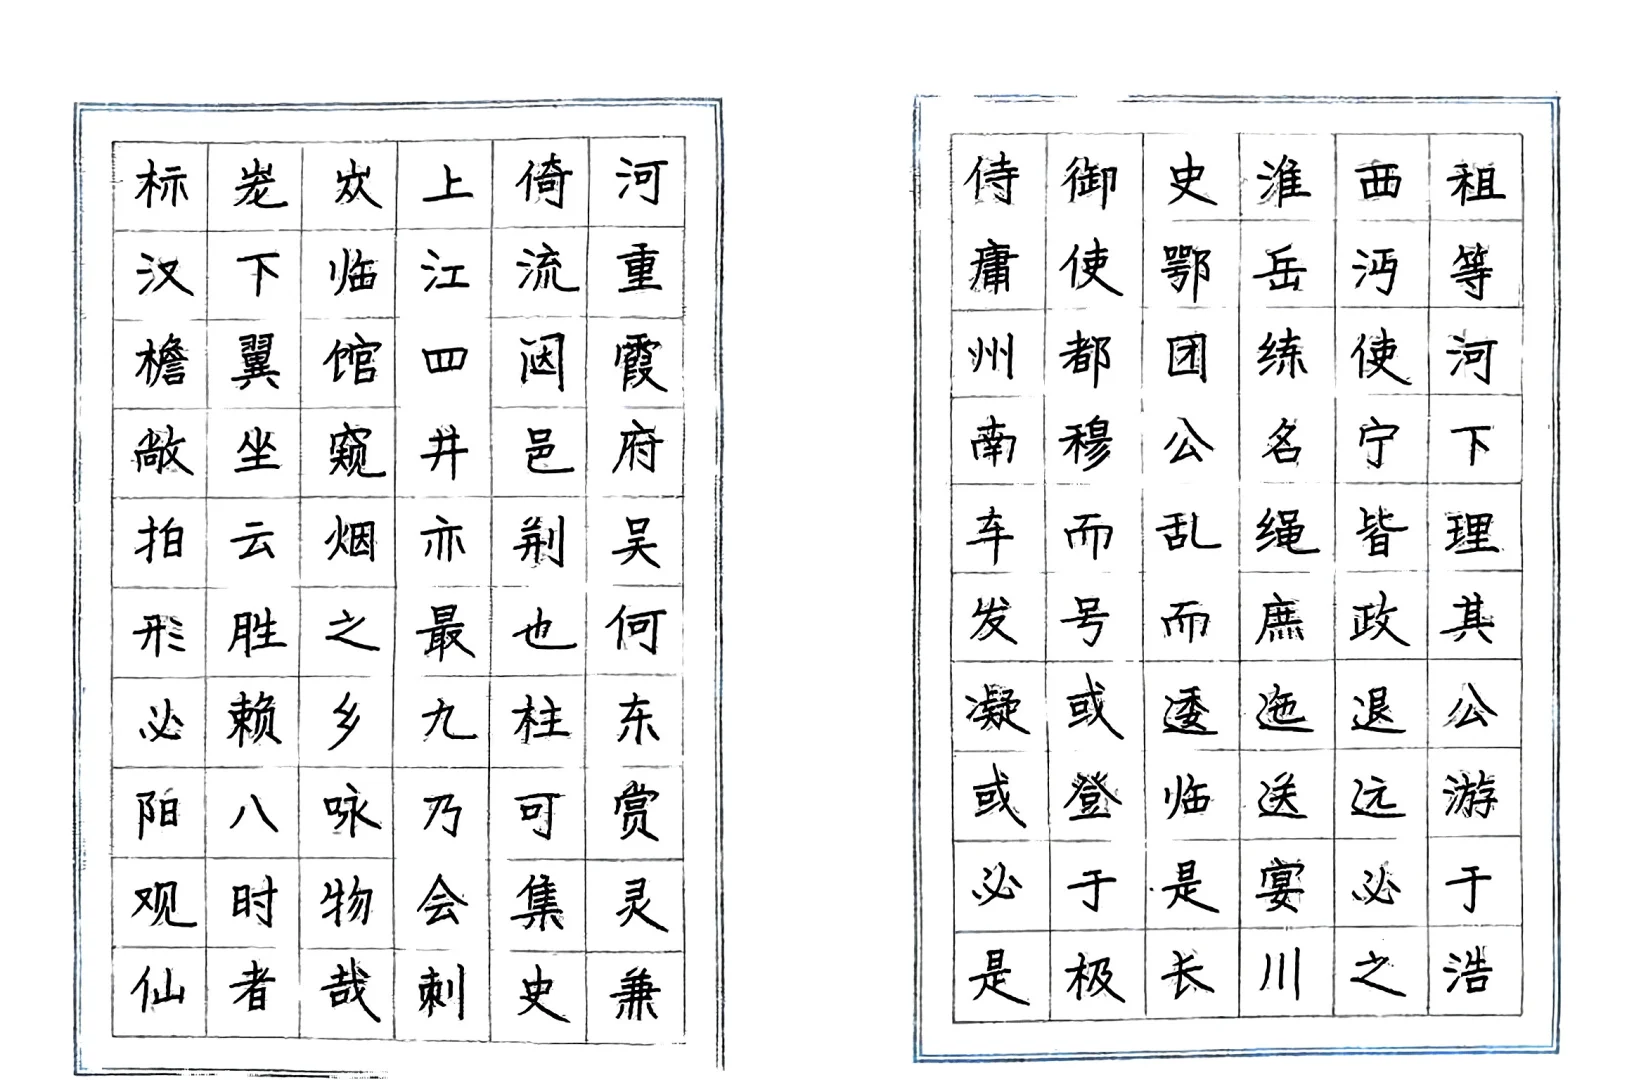 标上倚河
汉下临江流重
檐翼馆四闼霞
敞坐窥井邑府
拍云烟亦荆吴
形胜之最也何
必赖乡九柱东
阳八咏乃可赏
观时物会集灵
仙者哉刺史兼
侍御史淮西租
庸使鄂岳沔等
州都团练使河
南穆公名宁下
车而乱绳皆理
发号而庶政其
凝或逶迤退公
或登临送远游
必于是宴必于
是极长川之浩